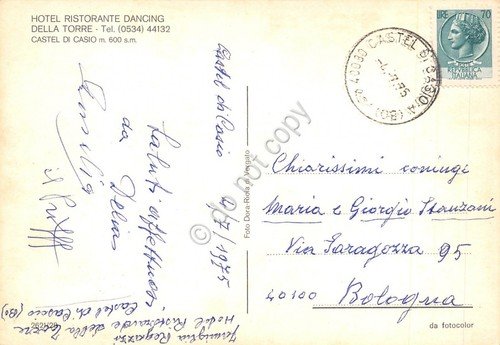 HOTEL RISTORANTE DANCING
DELLA TORRE - Tel. (0534) 44132
CASTEL DI CASIO m. 600 s.m.
Castel di Casio
4/7/1975
Saluti affettuosi
da Delmas
famiglia
Hotel Ristorante della Torre
Castel di Casio (Bo)
262828
Foto Dora-Riola di Vergato
do not copy
LIRE 70
REPUBBLICA
ITALIANA
40030 CASTEL DI CASIO (BO)
-4.7.75
Chiarissimi coniugi
Maria e Giorgio Stanzani
Via Saragozza 95
40100 Bologna
da fotocolor